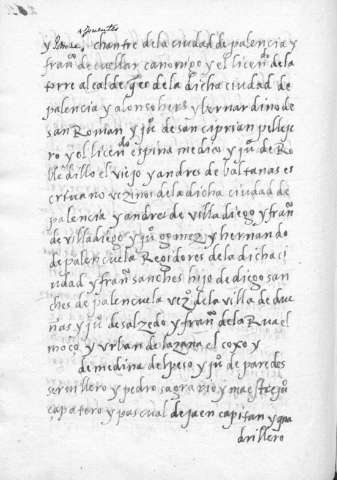 y chantre de la ciudad de palencia y
fran.co de cuellar canonigo y el licen.do de la
torre alcalde q̃ es de la dicha ciudad de
palencia y alonso hers y bernardino de
san Roman y ju.o de san ciprian pelleje
ro y el licen.do espina medico y ju.o de Ro
bledillo el viejo y andres de baltanas es
crivano vezinos de la dicha ciudad de
palencia y andres de villadiego y fran.co
de villadiego y ju.o gomez y hernando
de palençuela Regidores de la dicha ci
udad y fran.co sanches hijo de diego san
ches de palencuela vez.o de la villa de due
ñas y ju.o de salzedo y fran.co de la Rua el
moço y urban de lazana el coxo y
de medina del peso y ju.o de paredes
serenllero y pedro sagrario y maestre ju.o
çapatero y pascual de jaen capitan y qua
drillero